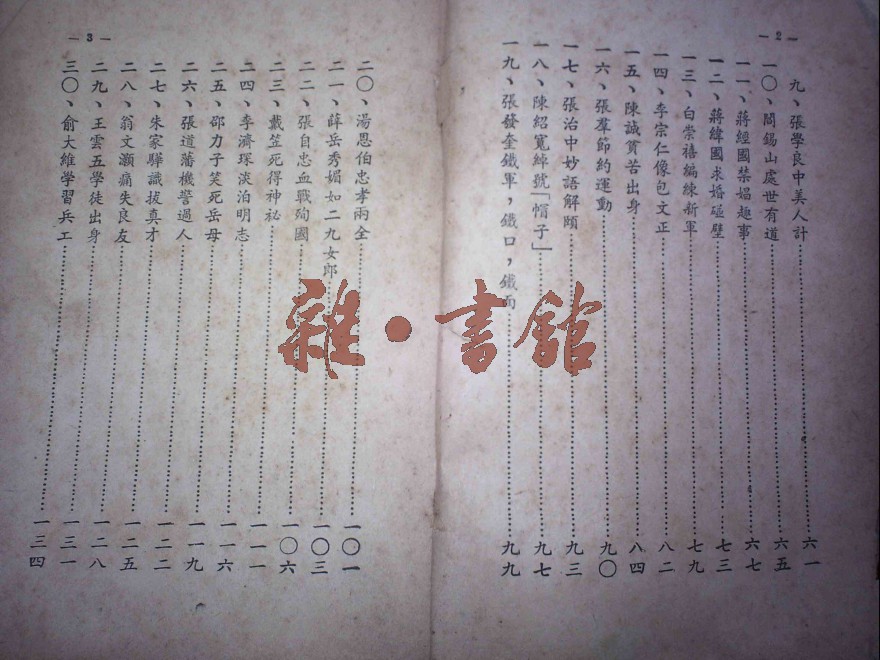 — 2 —
九、張學良中美人計……六一
一〇、閻錫山處世有道……六五
一一、蔣經國禁娼趣事……六七
一二、蔣緯國求婚碰壁……七三
一三、白崇禧編練新軍……七九
一四、李宗仁像包文正……八二
一五、陳誠貧苦出身……八四
一六、張羣節約運動……九〇
一七、張治中妙語解頤……九三
一八、陳紹寬綽號「帽子」……九七
一九、張發奎鐵軍，鐵口，鐵面……九九
— 3 —
二〇、湯恩伯忠孝兩全……一〇一
二一、薛岳秀媚如二九女郎……一〇三
二二、張自忠血戰殉國……一〇六
二三、戴笠死得神祕……一一一
二四、李濟琛淡泊明志……一一六
二五、邵力子笑死岳母……一一九
二六、張道藩機警過人……一二二
二七、朱家驊識拔真才……一二五
二八、翁文灝痛失良友……一二八
二九、王雲五學徒出身……一三一
三〇、俞大維学習兵工……一三四
雜·書館